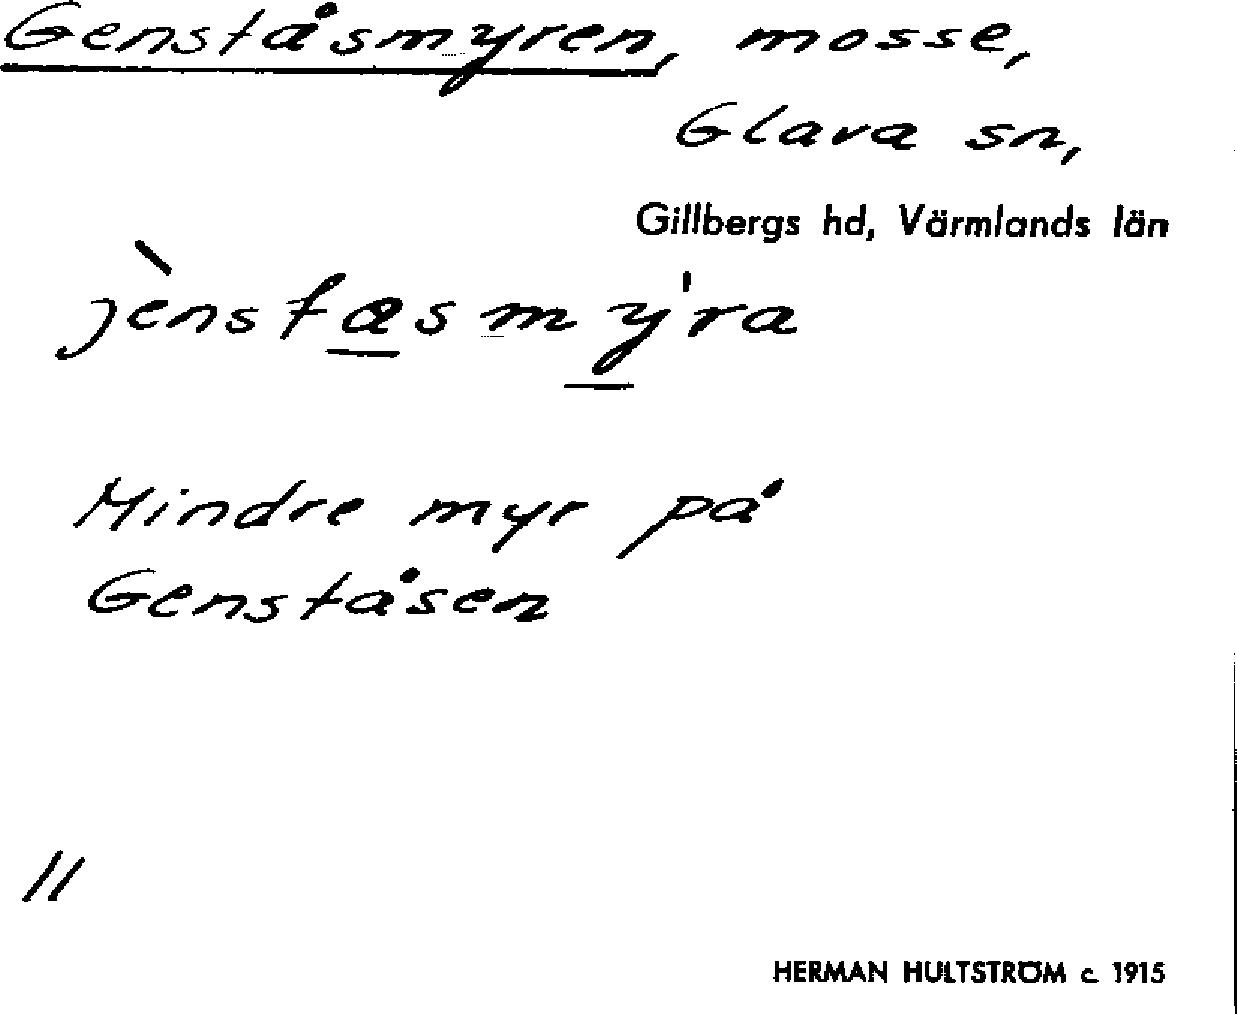 Genståsmyren, mosse,
Glava sn,
Gillbergs hd, Värmlands län
jènstasmy'ra
Mindre myr på
Genståsen
11
HERMAN HULTSTRÖM c. 1915